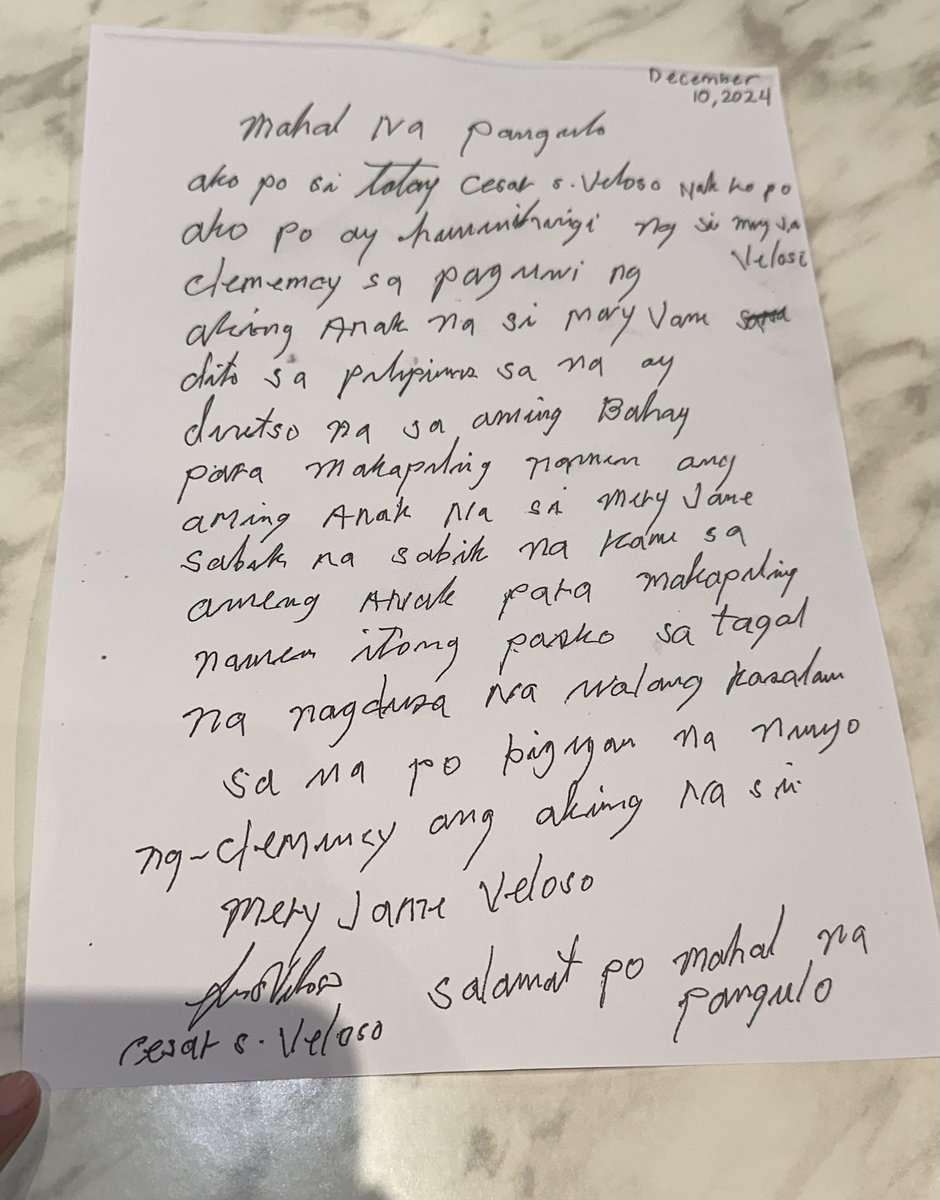 December
10, 2024
Mahal Na pangulo
ako po si Tatay Cesar s. Veloso
ako po ay humihingi ng
Clememcy sa paguwi ng
aking Anak na si Mary Jane
dito sa pilipinas sa na ay
diretso na sa aming Bahay
para makapiling namin ang
aming Anak Na si Mery Jane
Sabik na sabik na kami sa
ameng ANak para makapiling
namen itong pasko sa tagal
na nagdusa Na walang kasalan
sa na po bigyan na ninyo
ng-clemency ang aking Na si
Mery Jane Veloso
salamat po mahal na
pangulo
Cesar s. Veloso